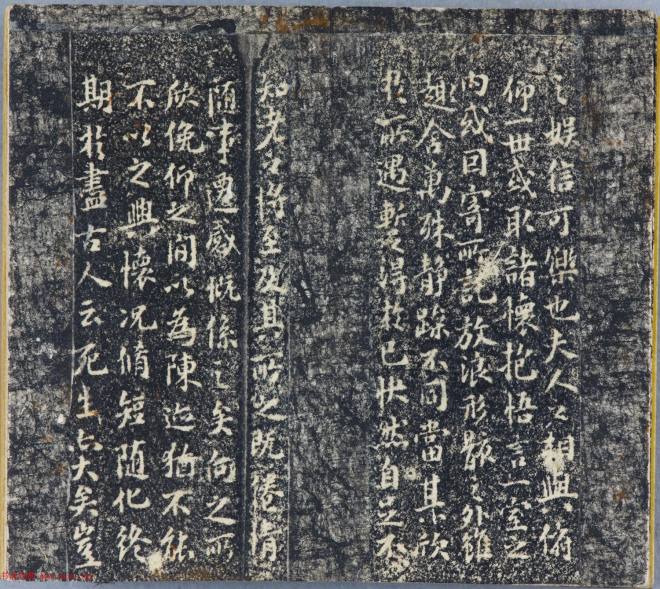 之娱信可樂也夫人之相與俯
仰一世或取諸懷抱悟言一室之
内或因寄所託放浪形骸之外雖
趣舍萬殊静躁不同當其欣
於所遇暫得於己怏然自足不
知老之將至及其所之既惓情
随事遷感慨係之矣向之所
欣俛仰之間以為陳迹猶不能
不以之興懷况脩短随化終
期於盡古人云死生亦大矣豈